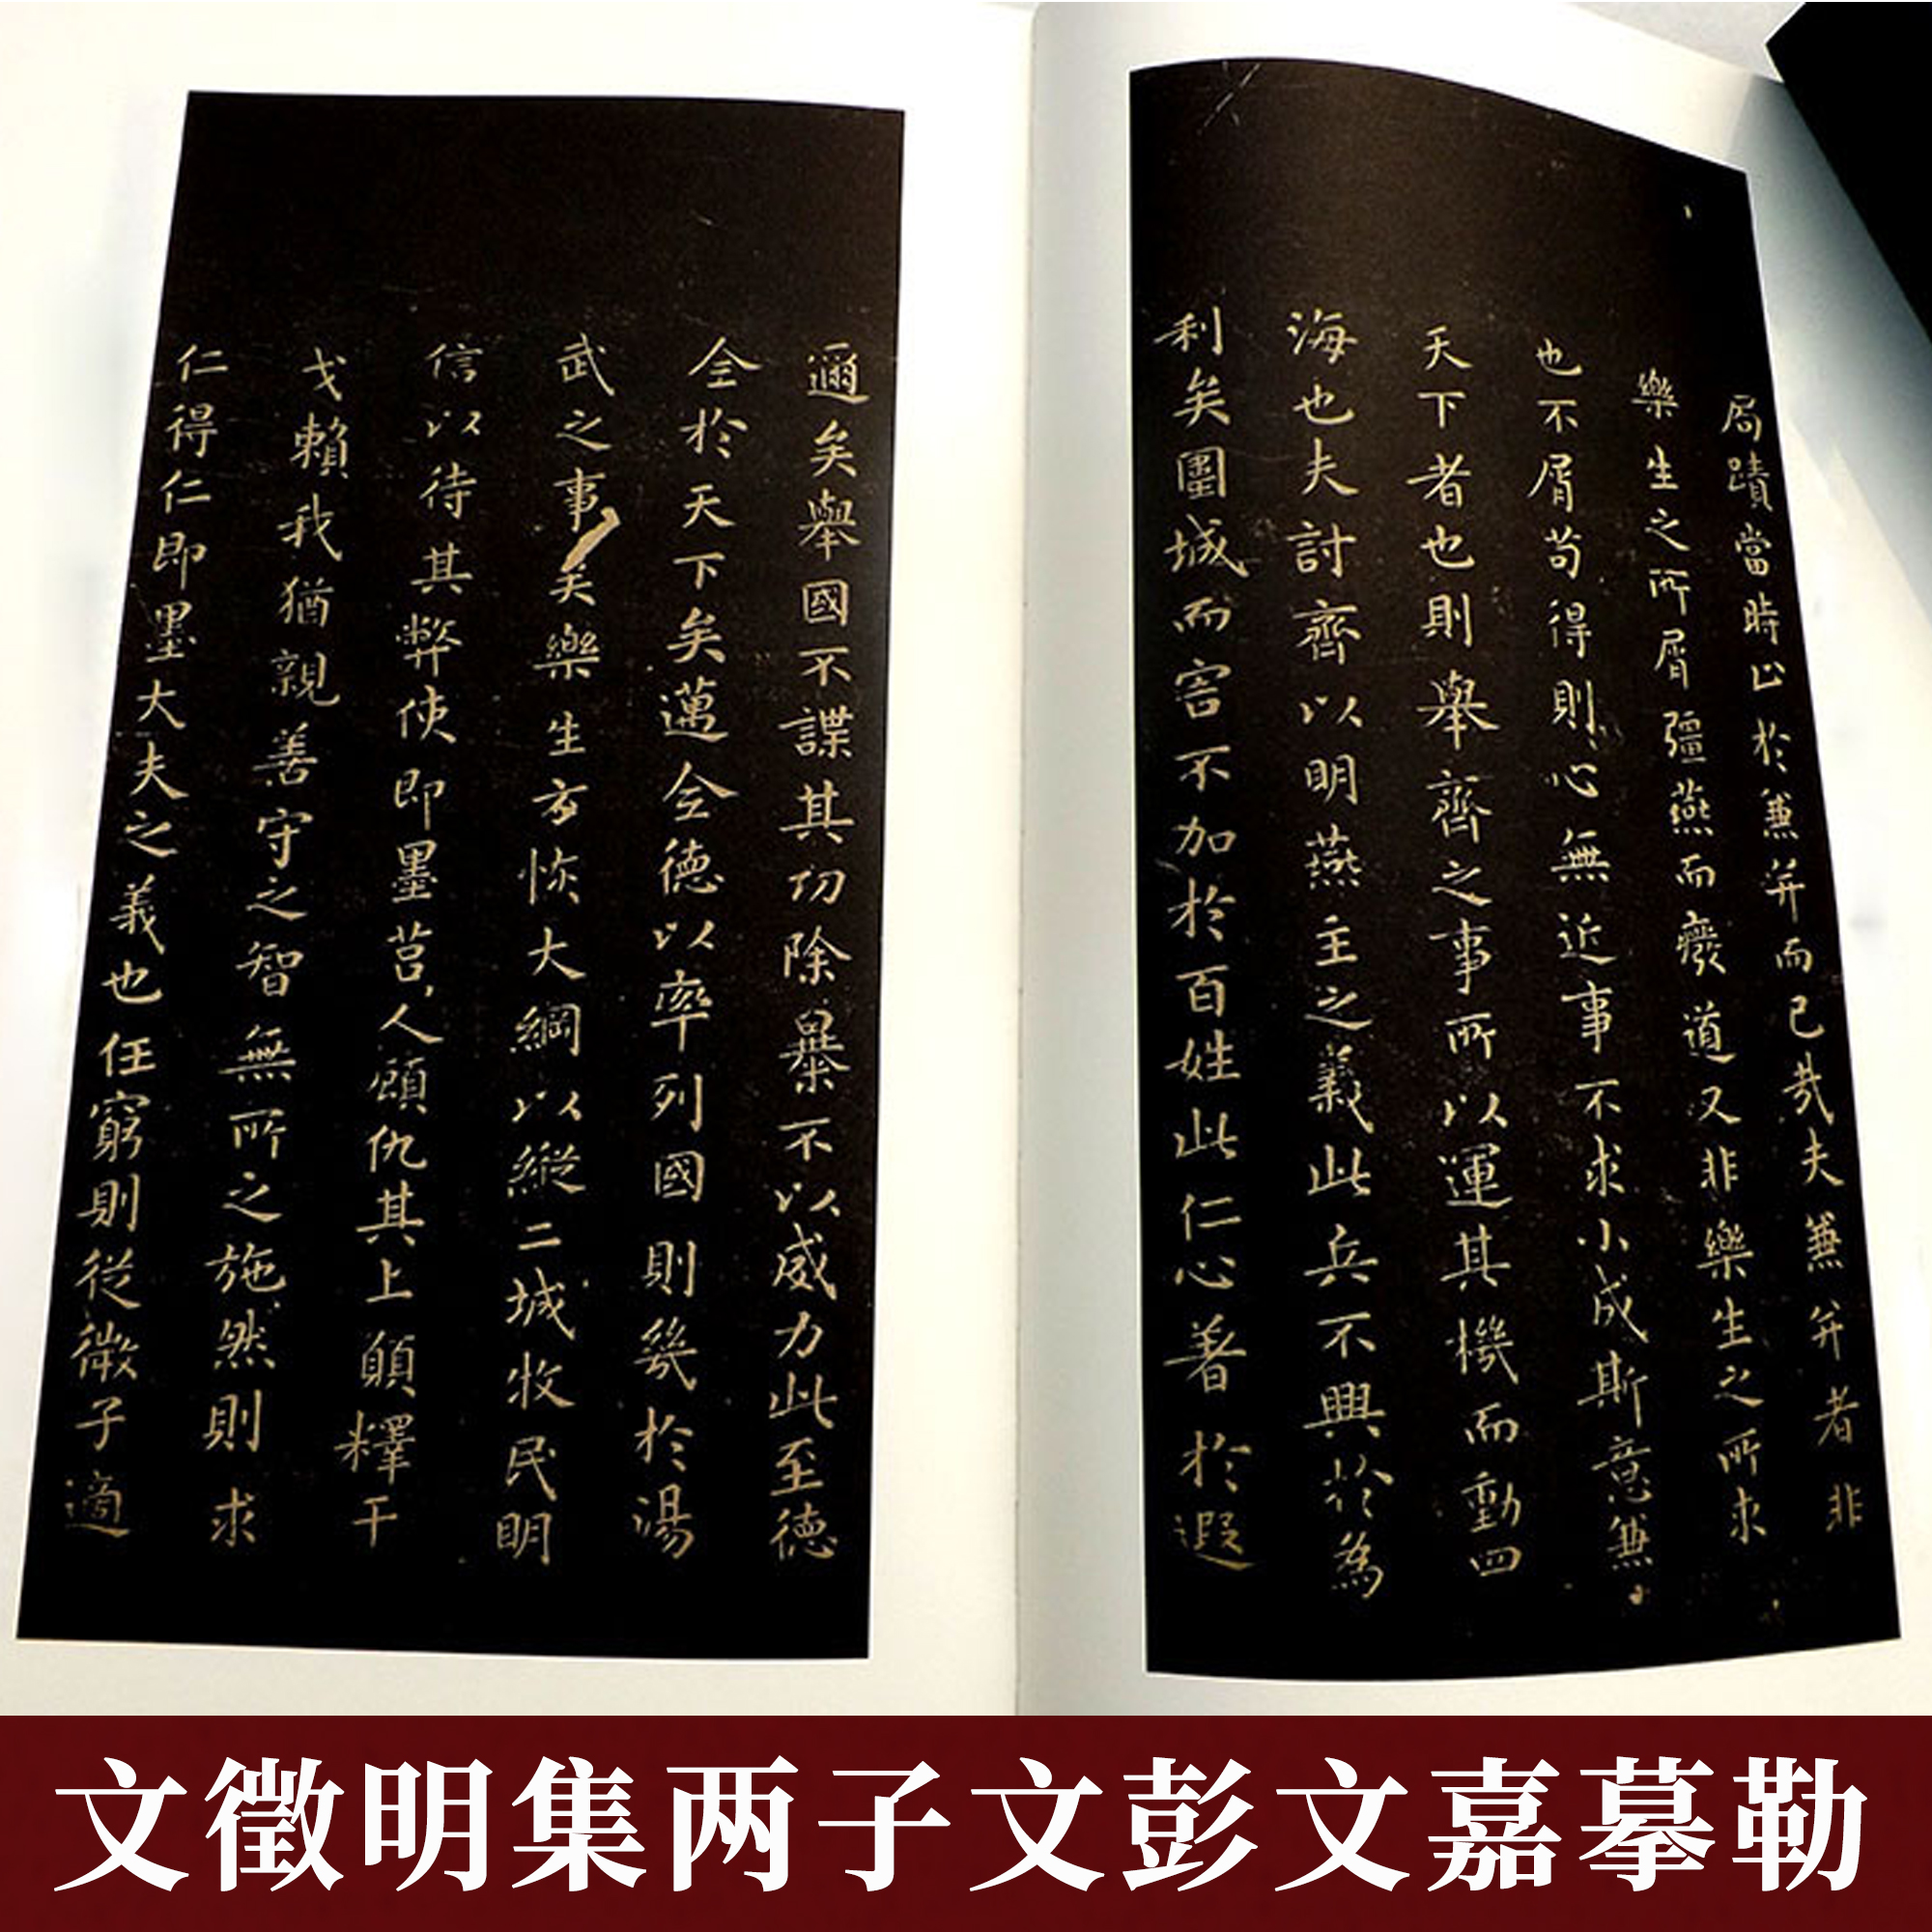 局蹟當時止於兼并而已哉夫兼并者非
樂生之所屑彊燕而癈道又非樂生之所求
也不屑苟得則心無近事不求小成斯意兼
天下者也則舉齊之事所以運其機而動四
海也夫討齊以明燕主之義此兵不興於為
利矣圍城而害不加於百姓此仁心著於遐
邇矣舉國不謀其功除暴不以威力此至德
全於天下矣邁全德以率列國則幾於湯
武之事矣樂生方恢大綱以縱二城收民明
信以待其弊使即墨莒人顧仇其上願釋干
戈賴我猶親善守之智無所之施然則求
仁得仁即墨大夫之義也任窮則從微子適
文徵明集两子文彭文嘉摹勒